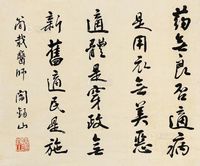 药無良否適病
是用衣無美惡
適體是穿政無
新舊適民是施
醫師 閻錫山